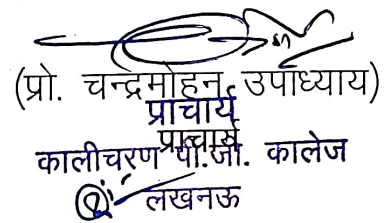 (प्रो. चन्द्रमोहन उपाध्याय)
प्राचार्य
प्राचार्य
कालीचरण पी.जी. कालेज
लखनऊ